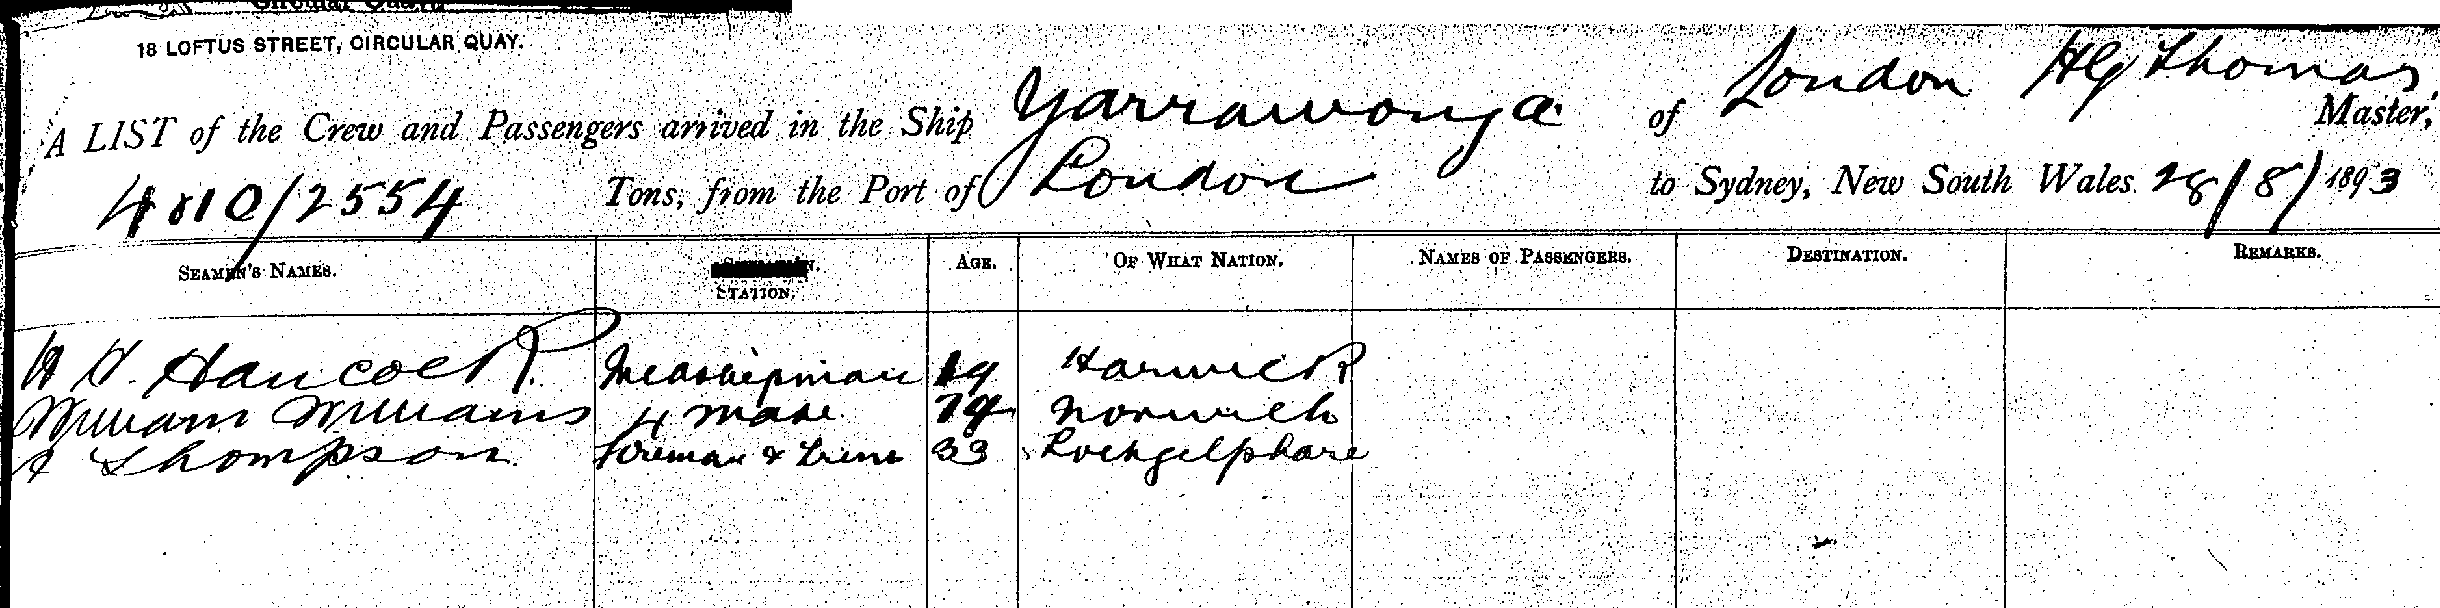 18 LOFTUS STREET, CIRCULAR QUAY.
A LIST of the Crew and Passengers arrived in the Ship Yarrawonga of London HG Thomas Master,
4010/2554 Tons, from the Port of London to Sydney, New South Wales 28/8/1893
SEAMEN'S NAMES. STATION. AGE. OF WHAT NATION. NAMES OF PASSENGERS. DESTINATION. REMARKS.
H. Hancock 19 Harwick
William Williams 4 mate Norwich
Thompson Fireman & 33